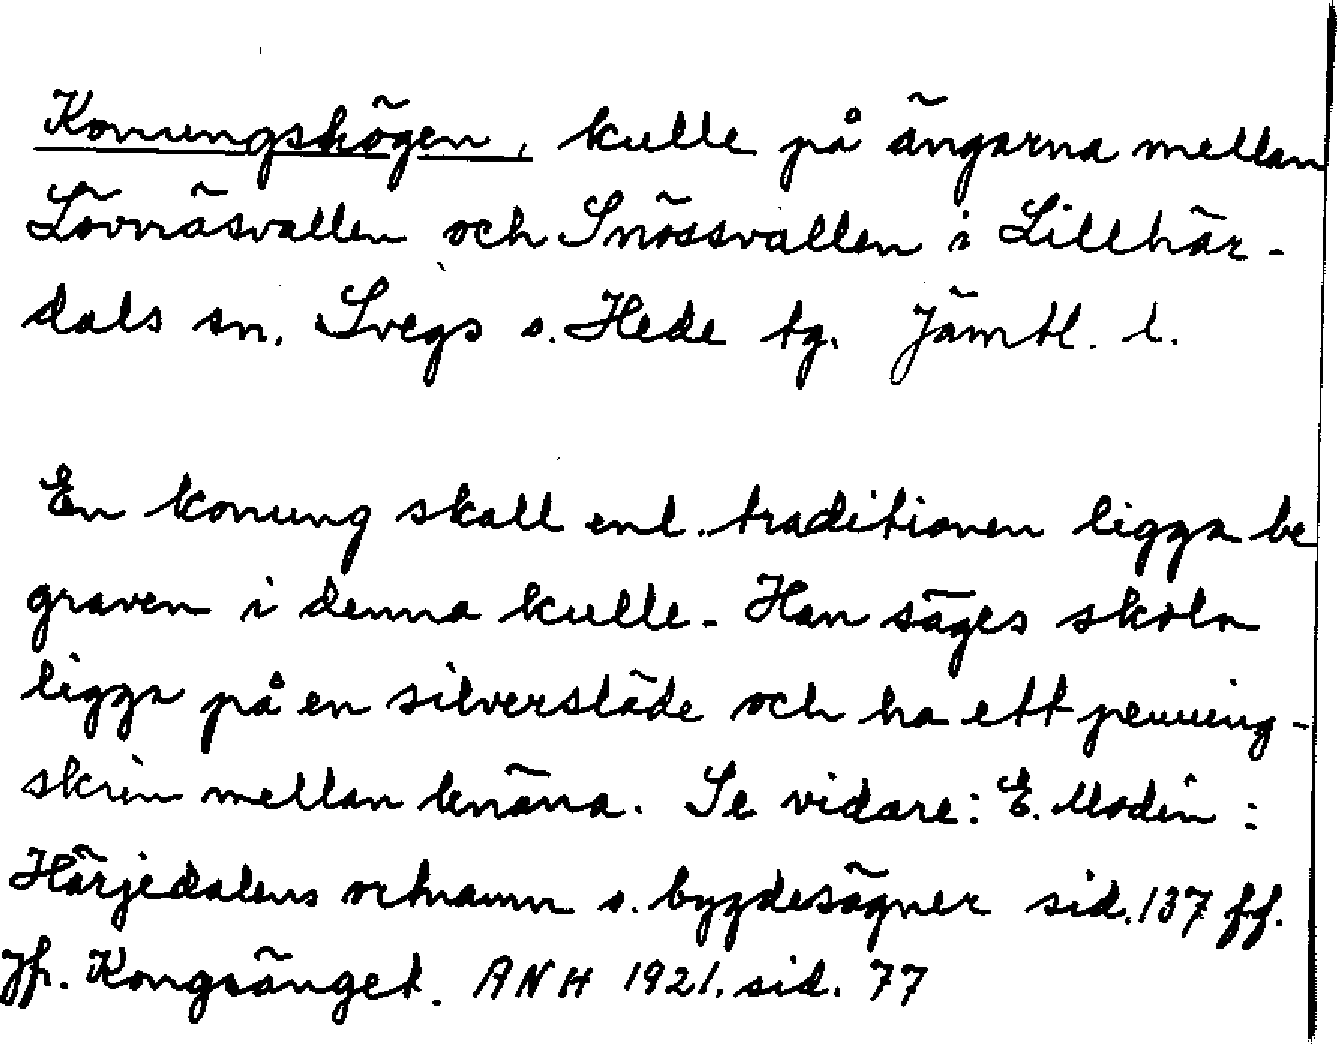 Konungshögen, kulle på ängarna mellan
Lövnäsvallen och Snössvallen i Lillhär-
dals sn. Svegs o. Hede tg. Jämtl. l.
En konung skall enl. traditionen ligga be
graven i denna kulle. Han säges skola
ligga på en silversläde och ha ett penning-
skrin mellan knäna. Se vidare: E. Modin:
Härjedalens ortnamn o. bygdesägner sid. 137 ff.
Jfr. Kongsänget. ANH 1921. sid. 77